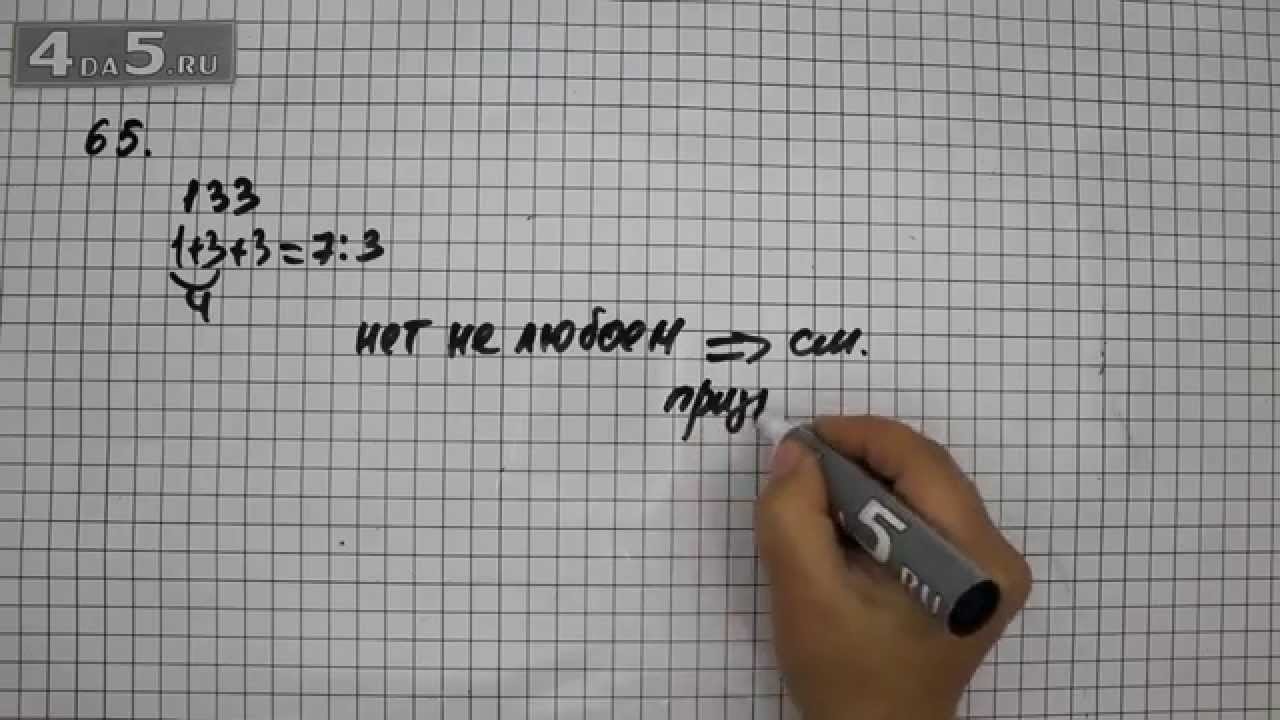 4DA5.RU
65.
133
1+3+3=7:3
4
нет не любоем ⇒ см.
призн
5.RU